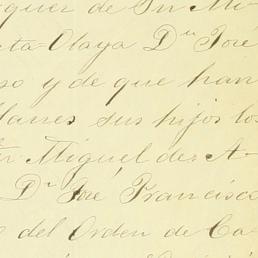 quer de Sn Mi-
ta-Olaya Dn José
so y de que han
llanes sus hijos los
Fr. Miguel de A-
Dn José Francisco
del Orden de Ca-